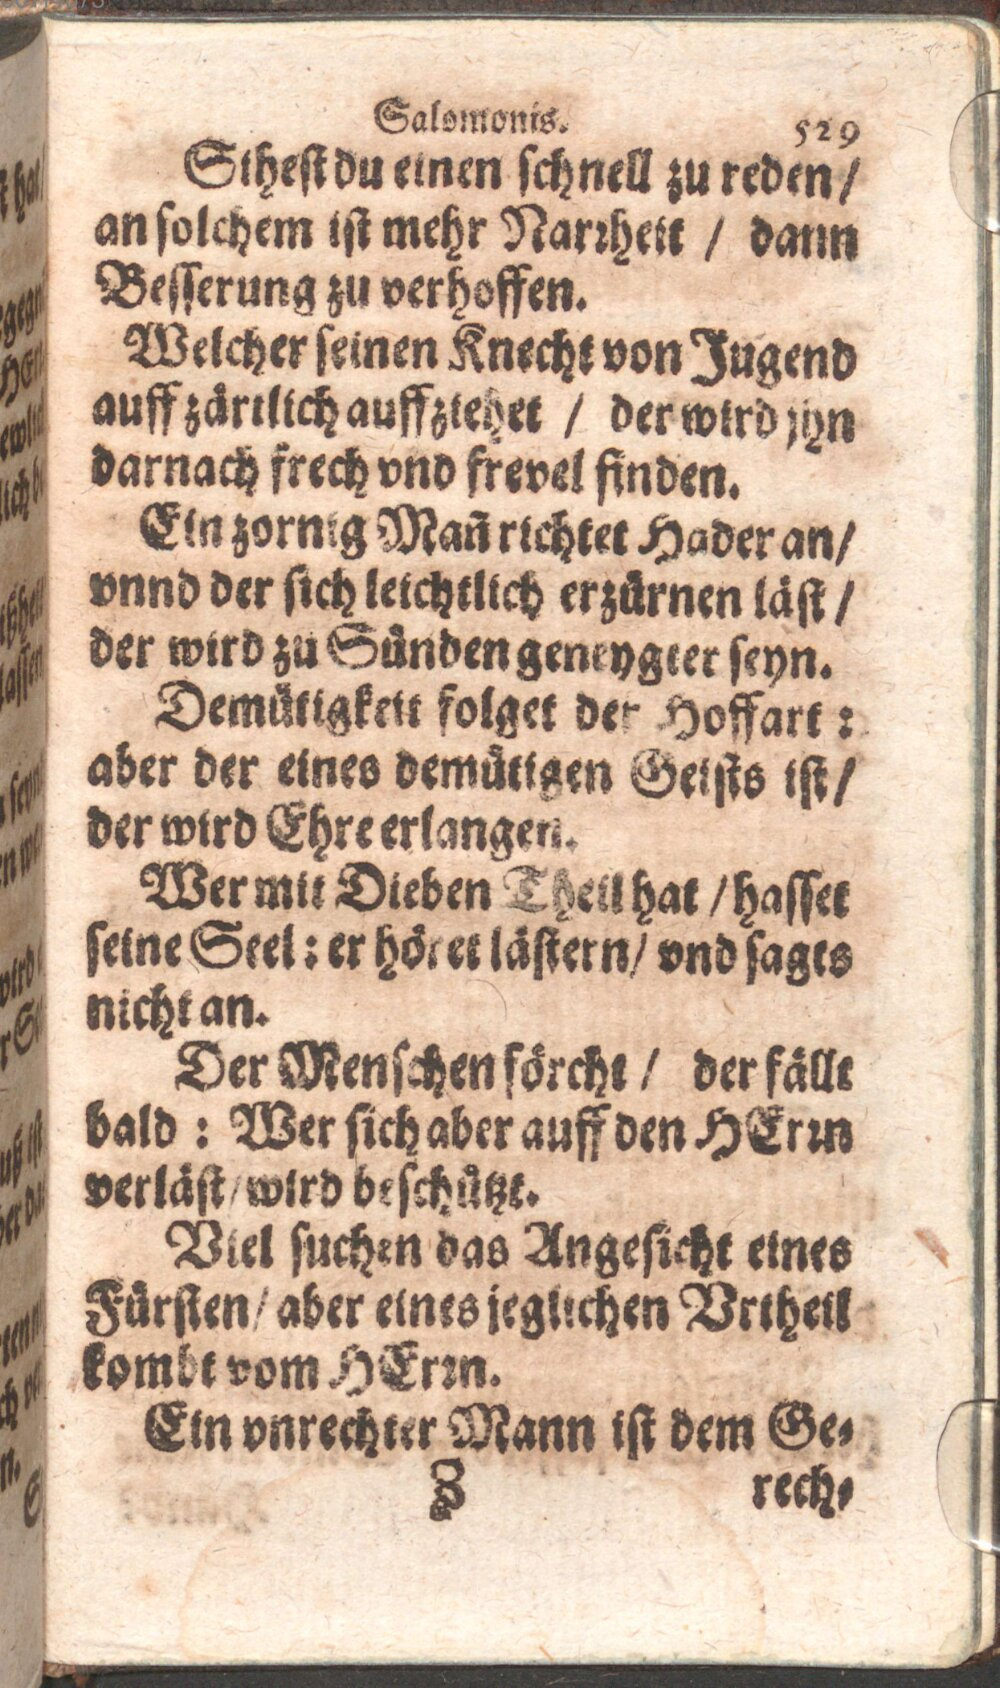 Salomonis. 529
Sihest du einen schnell zu reden /
an solchem ist mehr Narrheit / dann
Besserung zu verhoffen.
Welcher seinen Knecht von Jugend
auff zärtlich auffziehet / der wird jhn
darnach frech vnd frevel finden.
Ein zornig Mañ richtet Hader an /
vnnd der sich leichtlich erzürnen läst /
der wird zu Sünden geneygter seyn.
Demütigkeit folget der Hoffart :
aber der eines demütigen Geists ist /
der wird Ehre erlangen.
Wer mit Dieben Theil hat / hasset
seine Seel : er höret lästern / vnd sagts
nicht an.
Der Menschen förcht / der fällt
bald : Wer sich aber auff den HErrn
verläst / wird beschützt.
Viel suchen das Angesicht eines
Fürsten / aber eines jeglichen Vrtheil
kombt vom HErrn.
Ein vnrechter Mann ist dem Ge-
Z rech-